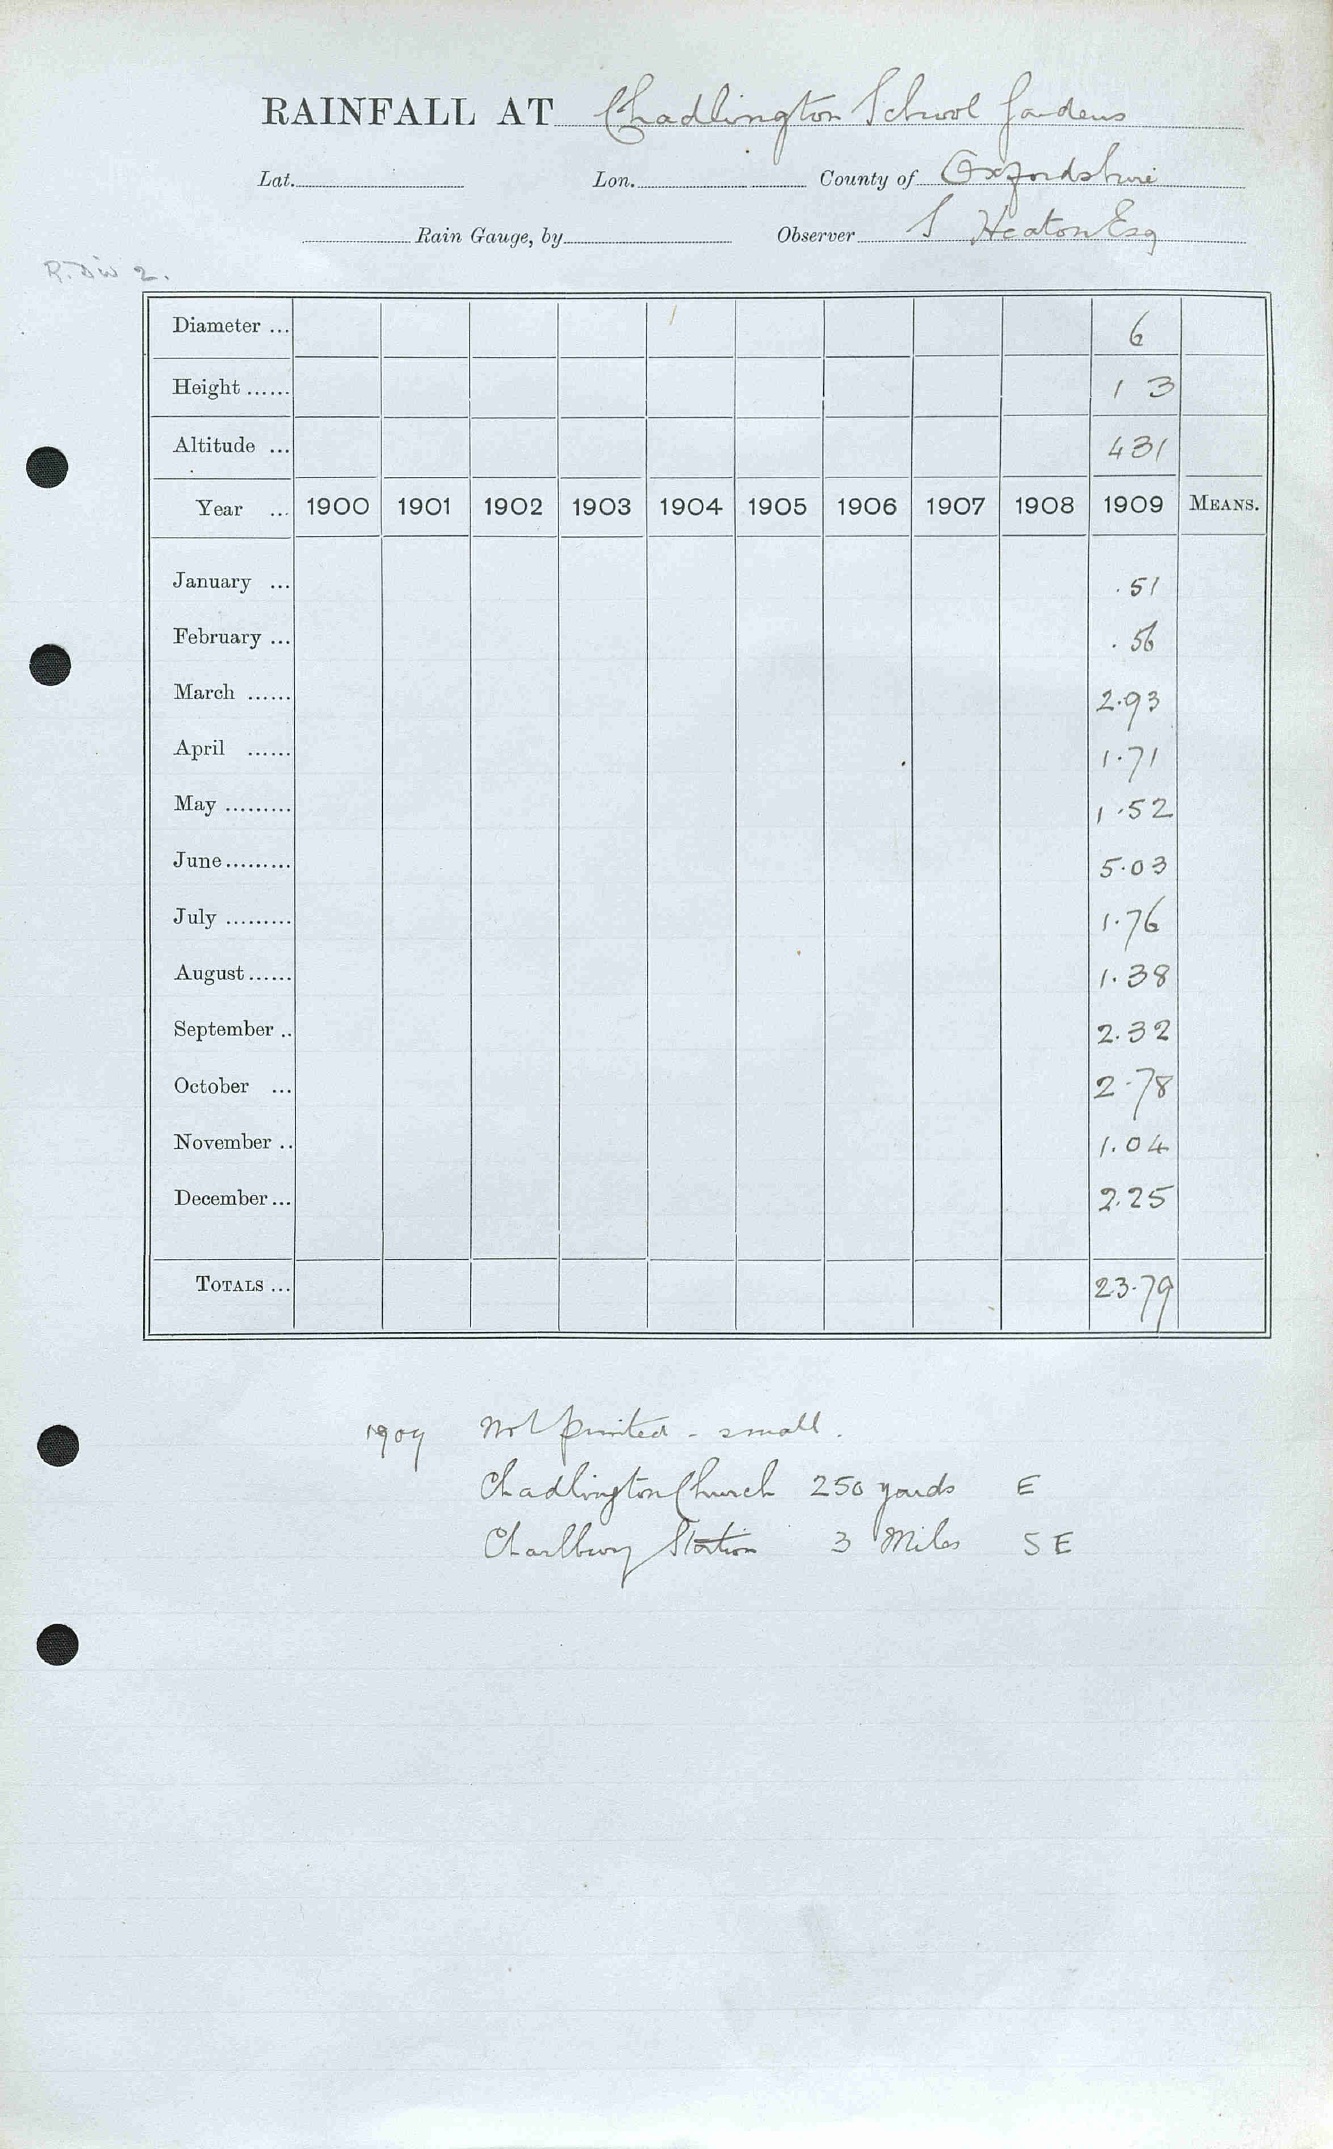 RAINFALL AT Chadlington School Gardens
Lat. Lon. County of Oxfordshire
Rain Gauge, by Observer S Heaton Esq
R. Div 2.
Diameter ... 6
Height ...... 1 3
Altitude ... 431
Year ... 1900 1901 1902 1903 1904 1905 1906 1907 1908 1909 MEANS.
January ... .51
February ... .56
March ...... 2.93
April ...... 1.71
May ......... 1.52
June ......... 5.03
July ......... 1.76
August ...... 1.38
September .. 2.32
October ... 2.78
November .. 1.04
December ... 2.25
TOTALS ... 23.79
1909 Not printed - small.
Chadlington Church 250 yards E
Charlbury Station 3 Miles SE